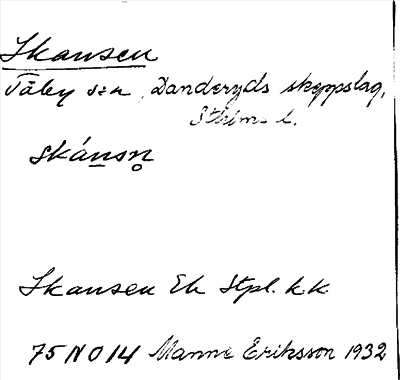 Skansen
Täby sn, Danderyds skeppslag,
Sthlms l.
skánsn̥
Skansen Ek Stpl. k.k.
75 NO 14 Manne Eriksson 1932